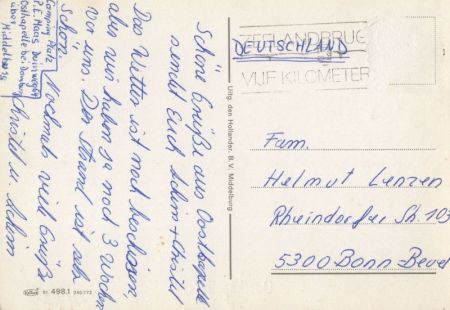 Schöne Grüße aus Oostkapelle
sendet Euch Achim + Christel
Das Wetter ist noch bescheiden,
aber wir haben ja noch 3 Wochen
vor uns. Der Strand ist sehr
Schön. Nochmals viele Grüße
Christel u. Achim
Camping Platz
P.E. Maas Duinweg
Ostkapelle bei Domburg
über
Middelburg
51 498.1 240772
Uitg. den Hollander. B.V. Middelburg
ZEELANDBRUG
VIJF KILOMETER
DEUTSCHLAND
Fam.
Helmut Lenzen
Rheindorfer Str 103
5300 Bonn-Beuel